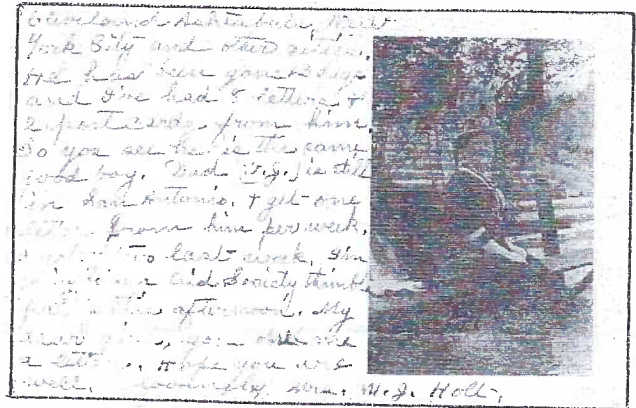 Cleveland Ashtabula, New
York City and other cities.
He has been gone days
and I've had 5 letters &
2 post cards from him.
So you see he is the same
good boy. Dad (T.J.) is still
in San Antonio. I get one
letter from him per week.
two last week. I'm
Aid Society thimble
this afternoon. My
owe me
a letter. Hope you are
well. Lovingly M. J. Holt.